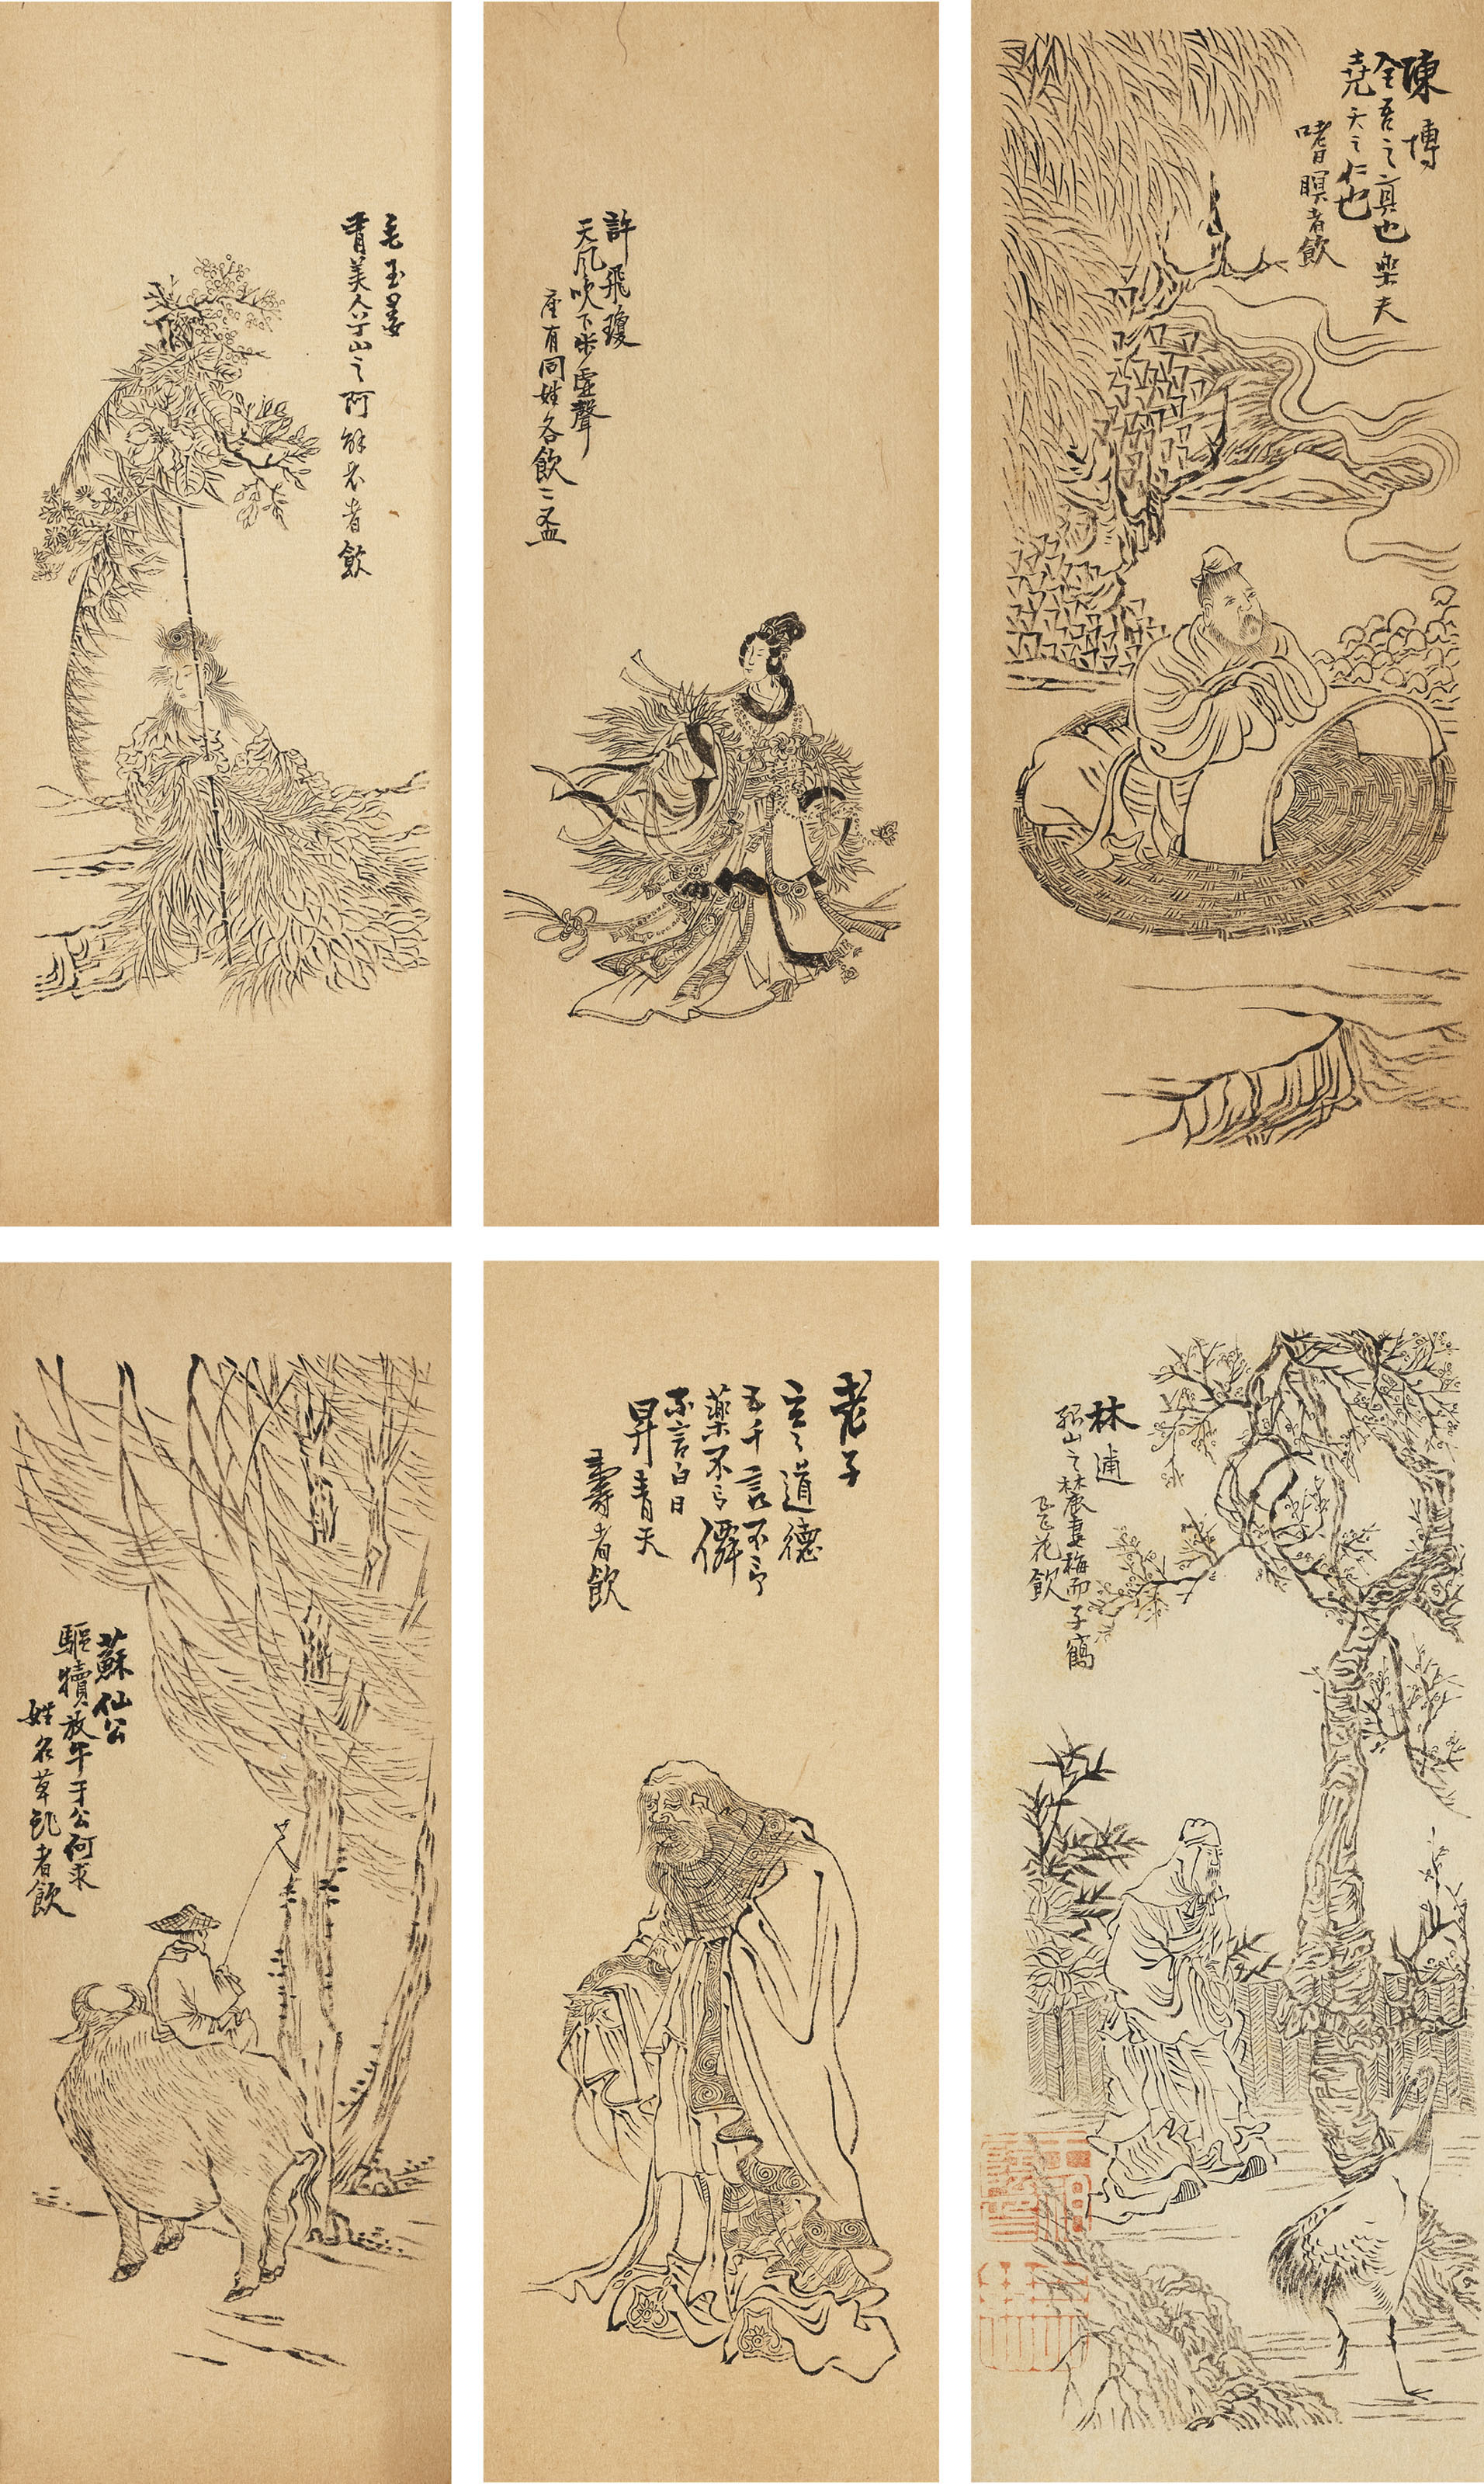 陳摶
全吾之真也樂夫
堯天之仁也
嗜瞑者飲
許飛瓊
天風吹下步虛聲
座有同姓各飲二盃
毛玉姜
有美人兮山之阿
者飲
林逋
孤山之麓妻梅而子鶴
飛花飲
老子
玄玄道德
五千言不言
藥不言僊
不言白日
昇青天
壽者飲
蘇仙公
驅犢放牛于公何求
姓名草
者飲